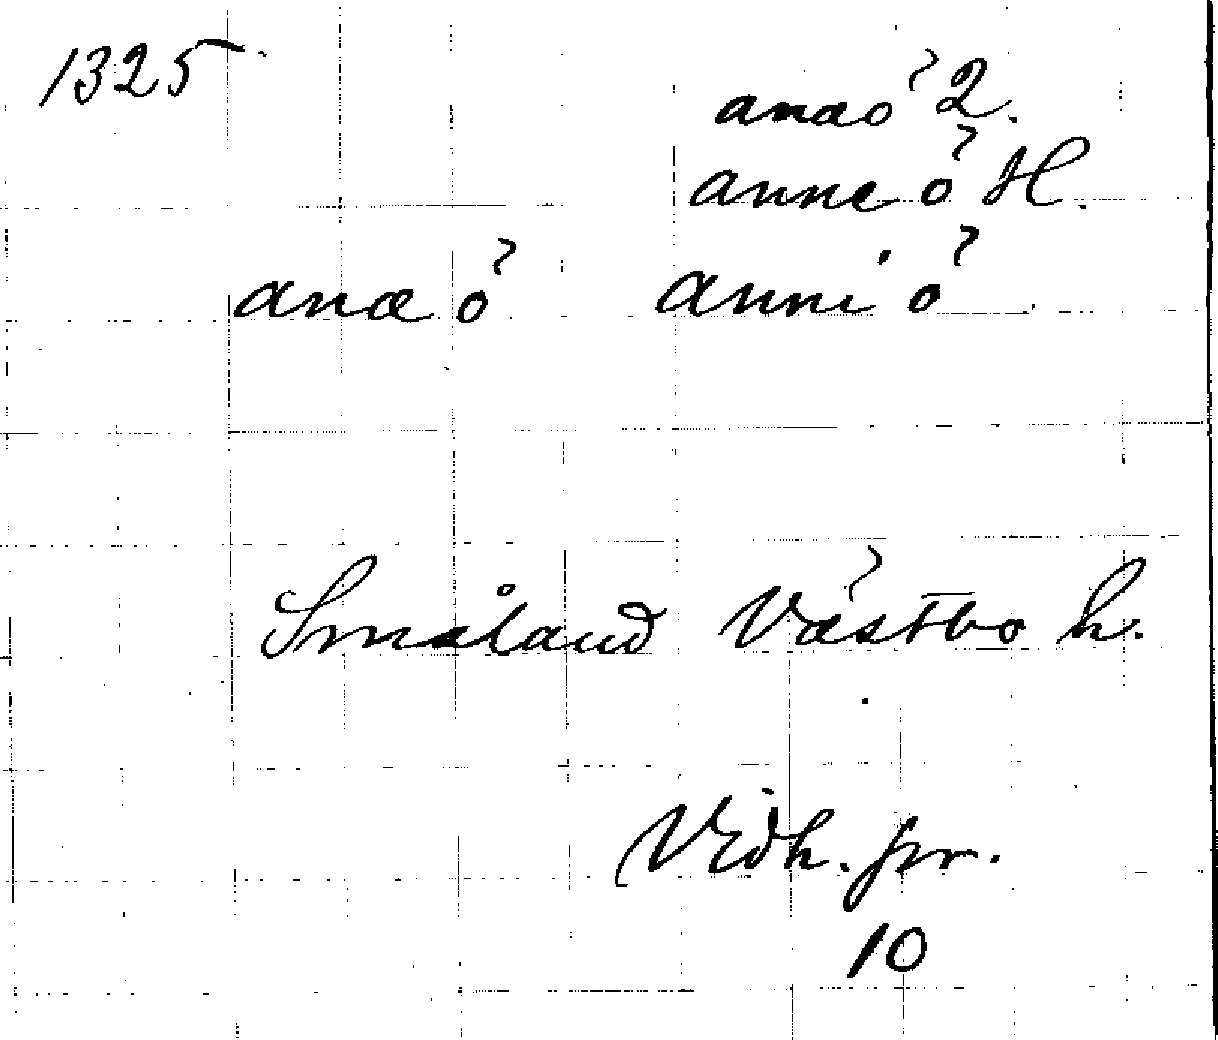 1325
anaö 2.
anneö H.
anæö anniö
Småland Västbo h.
Vidh. pr.
10